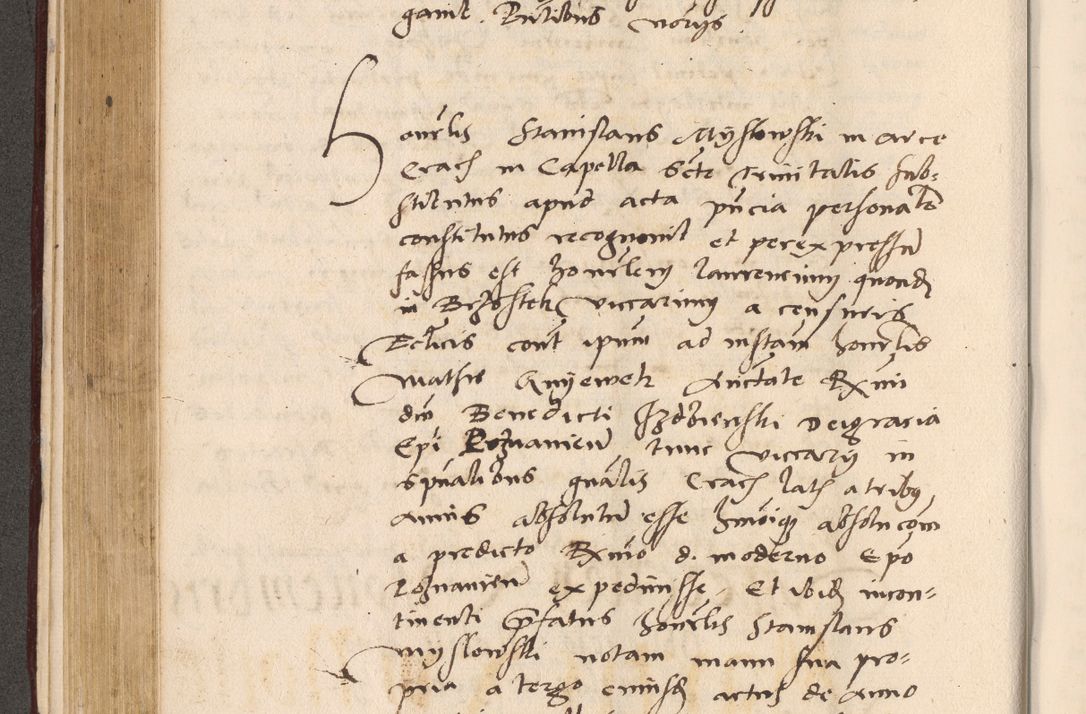 ganit. Rationibus notarijs
Honorabilis Stanislaus Myslowski in arce
Cracoviensi in Capella Sancte Trinitatis sub-
stitutus apud acta presencia personaliter
constitutus recognovit et per expressum
fassus est honorabilem laurencium quondam
in Brzostek viccarium a censuris
Ecclesiasticis contra ipsum ad instanciam honorabilis
Mathie Knyewek Auctoritate Reverendissimi
domini Benedicti Izdbienski Dei gracia
Episcopi Poznaniensis tunc viccarij in
spiritualibus generalis Cracoviensis latis a tribus
annis absolutum esse huiusmodique absolucionem
a predicto Reverendissimo d. moderno Episcopo
Poznaniensi expedivisse, Et ibidem incon-
tinenti prefatus honorabilis Stanislaus
Myslowski notam manu sua pro-
pria a tergo eiusdem actus de Anno